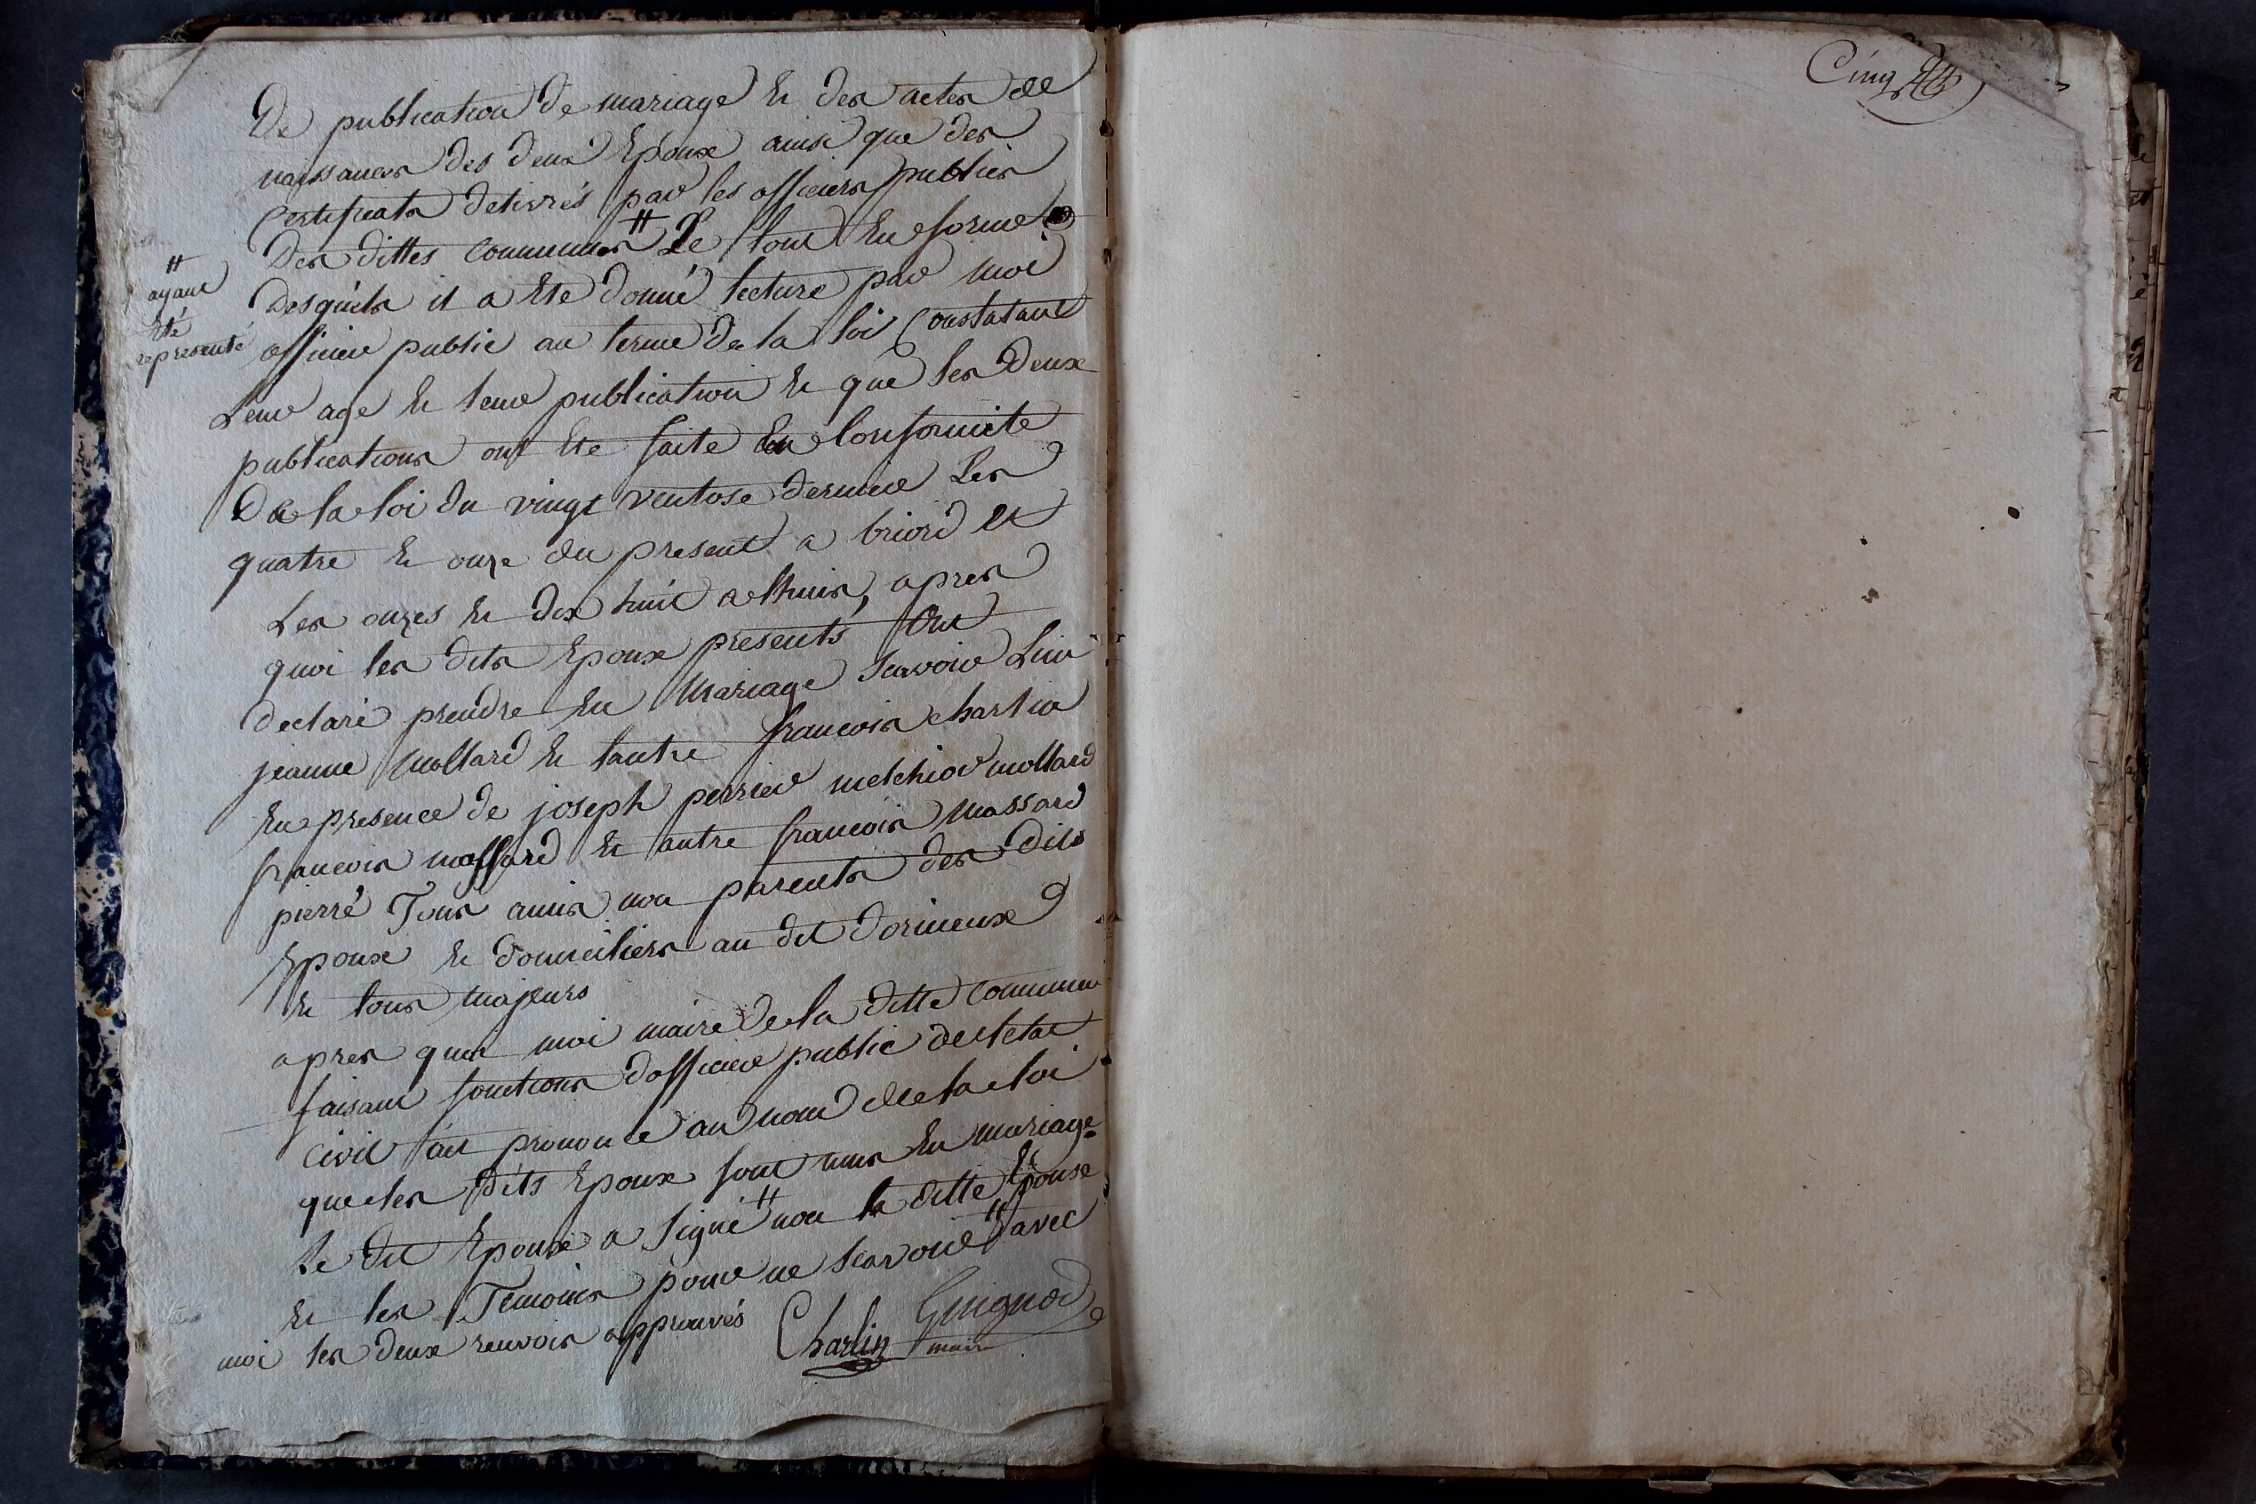 De publication de mariage et des actes de
naissances des deux Epoux ainsi que des
Certificats delivrés par les officiers publics
Des dittes communes # Le tout en forme
#
ayant
été
representé
Desquels il a été donné lecture par moi
officier public au terme de la loi Constatant
Leur age et leur publication et que les deux
publications ont été faite en Conformite
De la loi du vingt ventose dernier Les
quatre et onze du present a briord et
Les onzes et dix huit a lhuis, apres
quoi les dits Epoux presents Ont
declaré prendre en Mariage scavoir Lun
jeanne Mollard et lautre francois charlin
En presence de joseph perrier melchior mollard
francois mollard et autre francois massard
pierré Tous amis non parents des dits
Epoux et domiciliers au dit Dorineux
et tous majeurs
apres quoi moi maire de la ditte commune
faisant fonctions dofficier public de letat
civil ait prononcé au nom de la loi
que les dits Epoux sont unis en mariage
Le dit Epoux a signé # non la ditte Epouse
et les Temoins pour ne scavoir # avec
moi les deux renvois approuvés Charlin Guignod
maire
Cinq